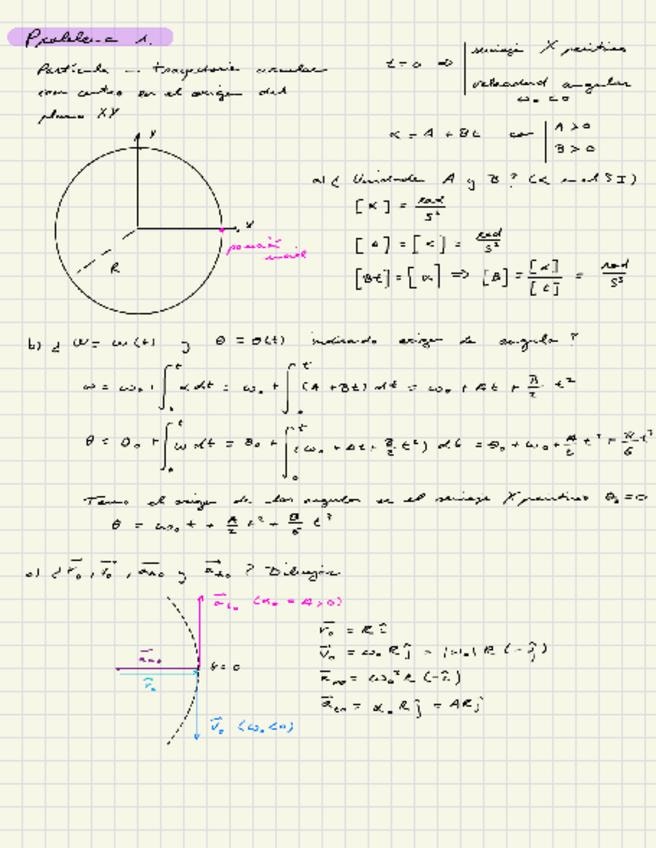 Problema 1.
Partícula — trayectoria circular
con centro en el origen del
plano XY
t=0 ⇒ semieje X positivo
velocidad angular
ω₀ < 0
α = A + Bt con A>0
B>0
y
x
posición
inicial
R
a) ¿ Unidades A y B ? (α en el SI)
[α] = rad/s²
[A] = [α] = rad/s²
[Bt] = [α] ⇒ [B] = [α]/[t] = rad/s³
b) ¿ ω = ω(t) y θ = θ(t) indicando origen de ángulo ?
ω = ω₀ + ∫₀ᵗ α dt = ω₀ + ∫₀ᵗ (A + Bt) dt = ω₀ + At + B/2 t²
θ = θ₀ + ∫₀ᵗ ω dt = θ₀ + ∫₀ᵗ (ω₀ + At + B/2 t²) dt = θ₀ + ω₀ + A/2 t² + B/6 t³
el origen de los ángulos en el semieje X positivo θ₀ = 0
θ = ω₀ t + A/2 t² + B/6 t³
c) ¿ r⃗₀, v⃗₀, a⃗ₙ₀ y a⃗ₜ₀ ? Dibujar
a⃗ₜ₀ (α₀ = A > 0)
a⃗ₙ₀
r⃗₀
t = 0
v⃗₀ (ω₀ < 0)
r⃗₀ = R î
v⃗₀ = ω₀ R ĵ = |ω₀| R (-ĵ)
a⃗ₙ₀ = ω₀² R (-î)
a⃗ₜ₀ = α₀ R ĵ = AR ĵ